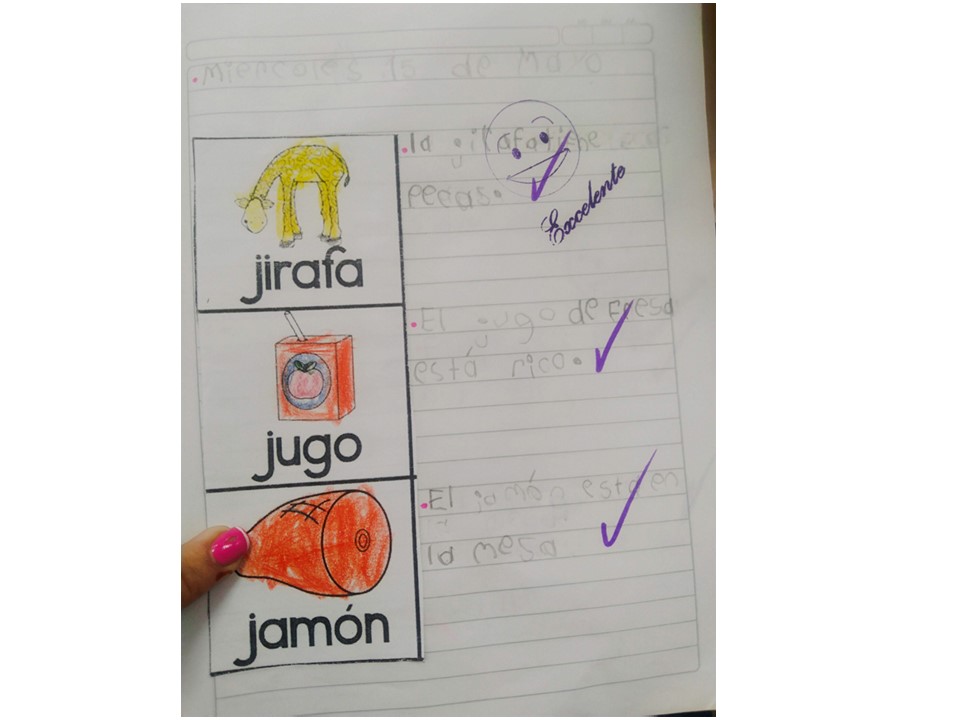 .Miercoles 15 de Mayo
jirafa
.la jirafa tiene
pecas.
Excelente
jugo
.El jugo de Fresa
está rico.
jamón
.El jamón esta en
la mesa